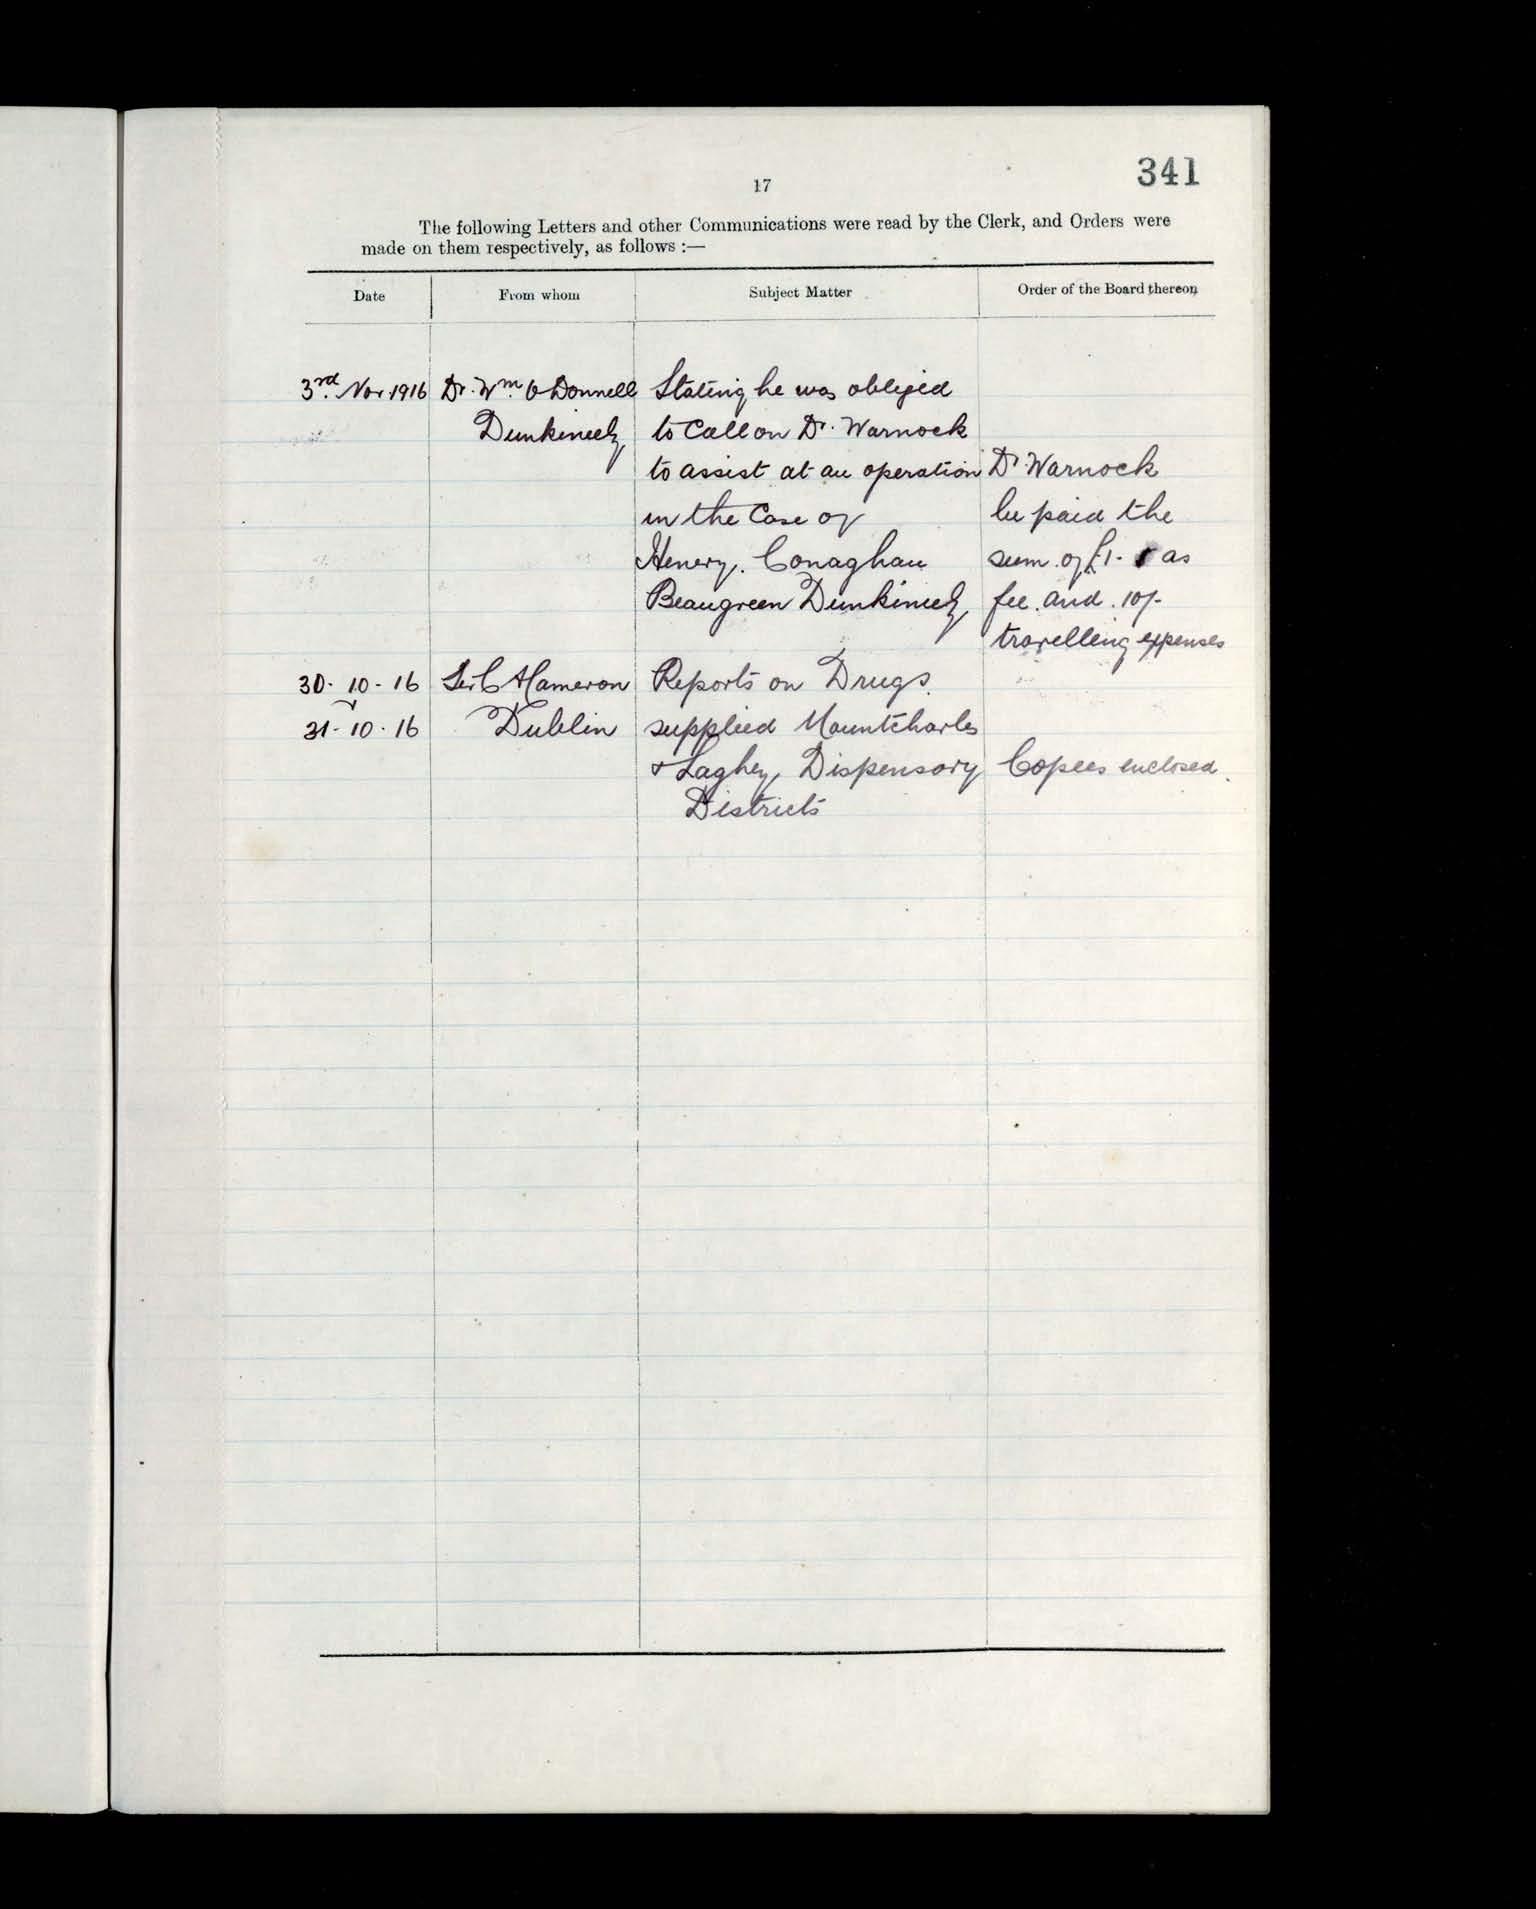 341
17
The following Letters and other Communications were read by the Clerk, and Orders were
made on them respectively, as follows :—
Date From whom Subject Matter Order of the Board thereon
3rd. Nov. 1916 Dr. Wm. O'Donnell Stating he was obliged
Dunkineely to Call on Dr. Warnock
to assist at an operation Dr Warnock
in the Case of be paid the
Henery. Conaghan sum of £1- as
Beaugreen Dunkineely fee. and. 10/-
travelling expenses
30. 10. 16 Sir C A Cameron Reports on Drugs.
31. 10. 16 Dublin supplied Mountcharles
& Laghey Dispensary Copies enclosed.
Districts